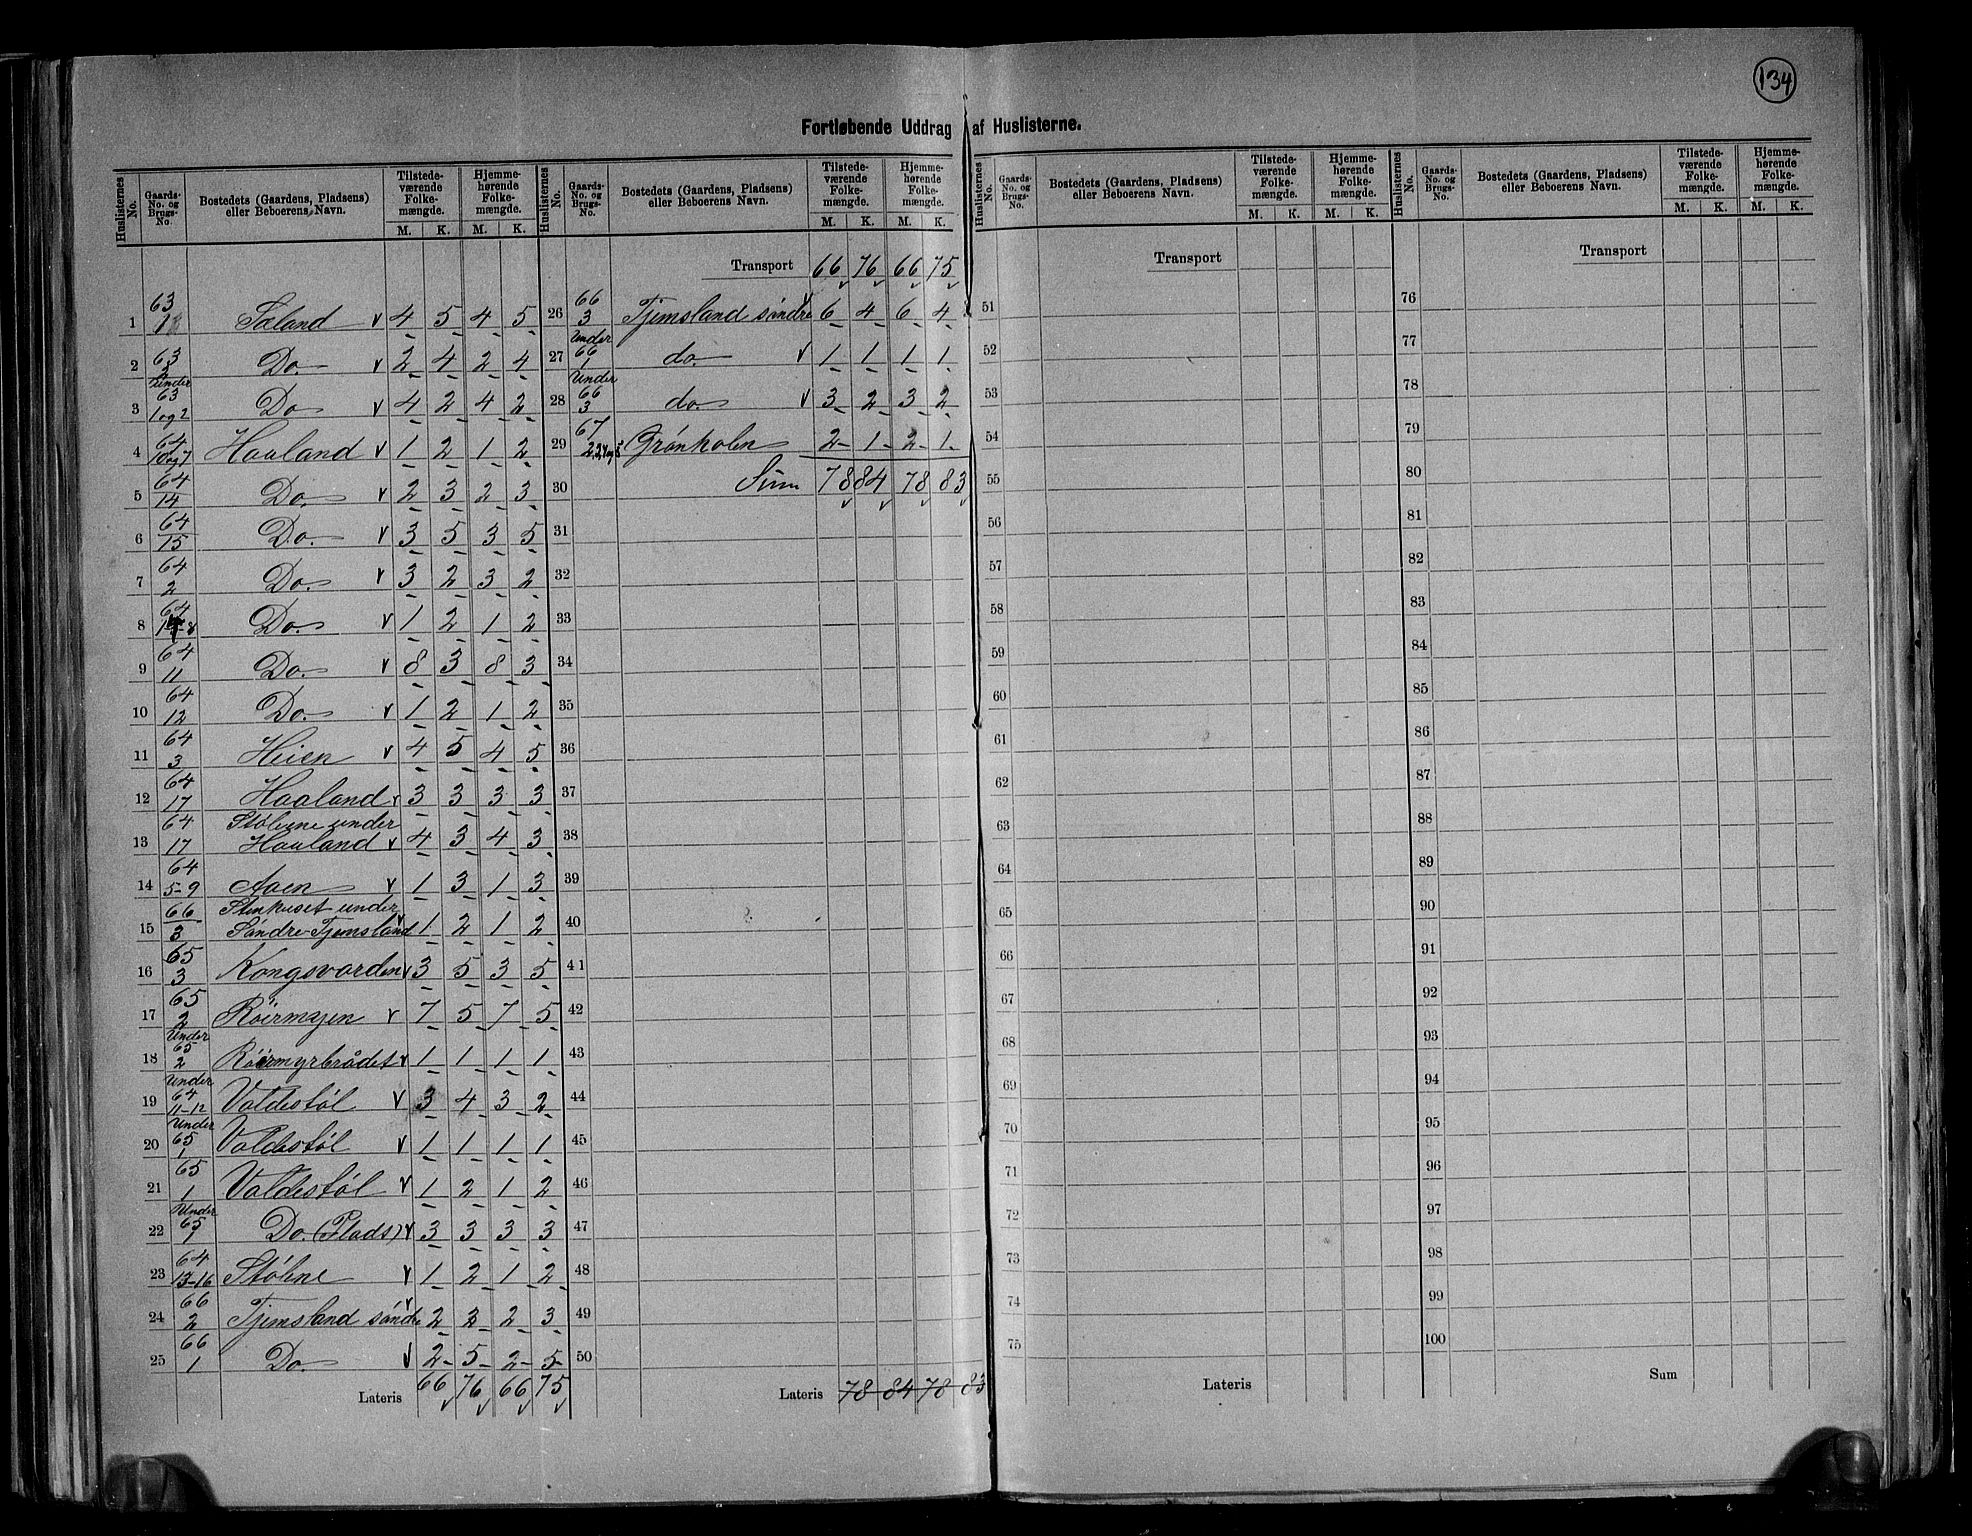 134
Fortløbende Uddrag af Huslisterne.
Huslisternes No. Gaards-No. og Brugs-No. Bostedets (Gaardens, Pladsens) eller Beboerens Navn. Tilstedeværende Folkemængde. M. K. Hjemmehørende Folkemængde. M. K.
1 63 Saland v 4 5 4 5
2 63 2 Do. v 2 4 2 4
3 Under 63 1 og 2 Do v 4 2 4 2
4 64 10 og 7 Haaland v 1 2 1 2
5 64 14 Do. v 2 3 2 3
6 64 15 Do. v 3 5 3 5
7 64 2 Do. v 3 2 3 2
8 64 Do. v 1 2 1 2
9 64 11 Do. v 8 3 8 3
10 64 12 Do. v 1 2 1 2
11 64 3 Heien v 4 5 4 5
12 64 17 Haaland v 3 3 3 3
13 64 17 Stølerne under Haaland v 4 3 4 3
14 64 5-9 Aaen v 1 3 1 3
15 66 3 Stenhuset under Søndre-Tjemsland v 1 2 1 2
16 65 3 Kongsvarden v 3 5 3 5
17 65 2 Röirmyen v 7 5 7 5
18 Under 65 2 Röirmyrbrådet v 1 1 1 1
19 Under 64 11-12 Valdestøl v 3 4 3 2
20 Under 65 1 Valdestøl v 1 1 1 1
21 65 1 Valdestøl v 1 2 1 2
22 Under 65 1 Do. (Plads) v 3 3 3 3
23 64 13-16 Stølne v 1 2 1 2
24 66 2 Tjemsland søndre v 2 3 2 3
25 66 1 Do. v 2 5 2 5
Lateris 66 76 66 75
Huslisternes No. Gaards-No. og Brugs-No. Bostedets (Gaardens, Pladsens) eller Beboerens Navn. Tilstedeværende Folkemængde. M. K. Hjemmehørende Folkemængde. M. K.
Transport 66 76 66 75
26 66 3 Tjemsland søndre v 6 4 6 4
27 Under 66 1 do v 1 1 1 1
28 Under 66 3 do. v 3 2 3 2
29 67 Grønholen 2 1 2 1
30 Sum 78 84 78 83
31
32
33
34
35
36
37
38
39
40
41
42
43
44
45
46
47
48
49
50
Lateris 78 84 78 83
Huslisternes No. Gaards-No. og Brugs-No. Bostedets (Gaardens, Pladsens) eller Beboerens Navn. Tilstedeværende Folkemængde. M. K. Hjemmehørende Folkemængde. M. K.
Transport
51
52
53
54
55
56
57
58
59
60
61
62
63
64
65
66
67
68
69
70
71
72
73
74
75
Lateris
Huslisternes No. Gaards-No. og Brugs-No. Bostedets (Gaardens, Pladsens) eller Beboerens Navn. Tilstedeværende Folkemængde. M. K. Hjemmehørende Folkemængde. M. K.
Transport
76
77
78
79
80
81
82
83
84
85
86
87
88
89
90
91
92
93
94
95
96
97
98
99
100
Sum